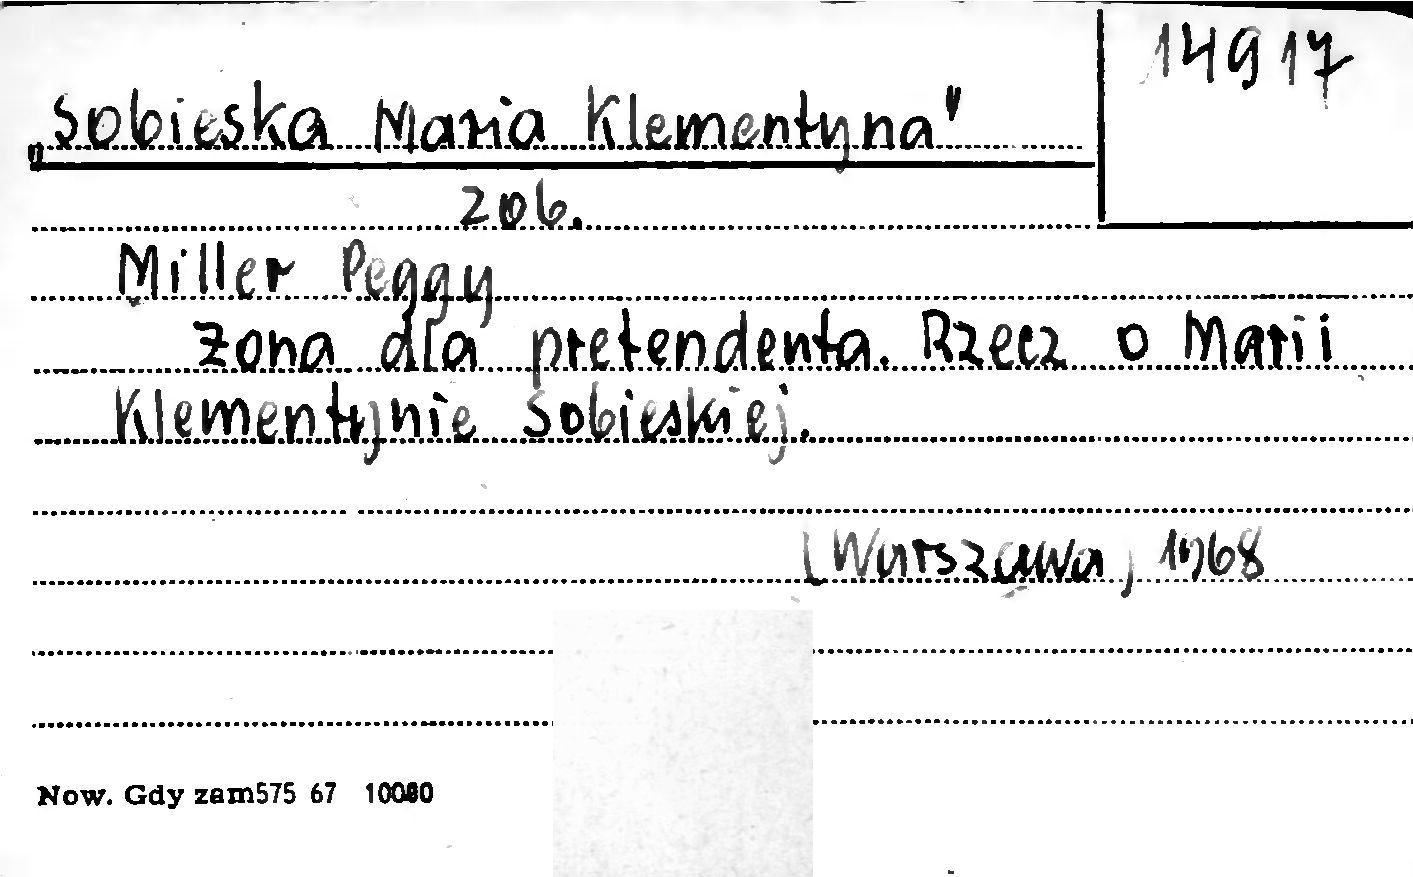 14917
„Sobieska Maria Klementyna"
206.
Miller Peggy
Żona dla pretendenta. Rzecz o Marii
Klementynie Sobieskiej.
(Warszawa, 1968
Now. Gdy zam575 67 10000